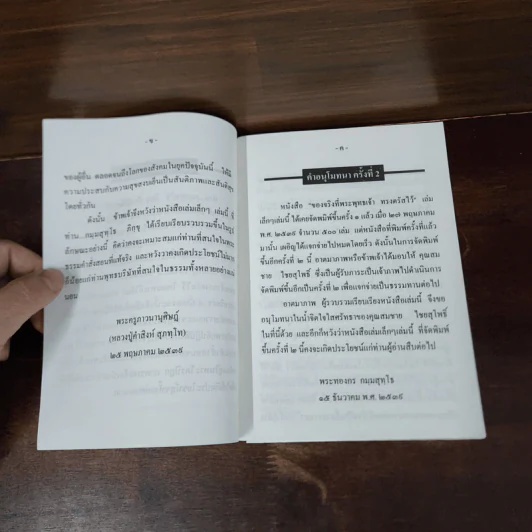 - ข -
ของผู้อื่น ตลอดจนถึงโลกของสังคมในยุคปัจจุบันนี้ ได้มี
ความประสบกับความสุขสงบเย็นเป็นสันติภาพและสันติสุข
โดยทั่วกัน
ดังนั้น ข้าพเจ้าจึงหวังว่าหนังสือเล่มเล็กๆ เล่มนี้ ที่
ท่าน...กมฺมสุทฺโธ ภิกฺขุ ได้เรียบเรียงรวบรวมขึ้นใน
ลักษณะอย่างนี้ คิดว่าคงจะเหมาะสมแก่ท่านที่สนใจใน
ธรรมคำสั่งสอนที่แท้จริง และหวังว่าคงเกิดประโยชน์ไม่มาก
ก็น้อยแก่ท่านพุทธบริษัทที่สนใจในธรรมทั้งหลายอย่าง
นอน
พระครูภาวนานุศิษฏ์
(หลวงปู่คำสิงห์ สุภทฺโท)
๒๕ พฤษภาคม ๒๕๓๙
- ค -
คำอนุโมทนา ครั้งที่ 2
หนังสือ "ของจริงที่พระพุทธเจ้า ทรงตรัสไว้" เล่ม
เล็กๆเล่มนี้ ได้เคยจัดพิมพ์ขึ้นครั้ง ๑ แล้ว เมื่อ ๒๗ พฤษภาคม
พ.ศ. ๒๕๓๙ จำนวน ๕๐๐ เล่ม แต่หนังสือที่พิมพ์ครั้งที่แล้ว
มานั้น เผอิญได้แจกจ่ายไปหมดโดยเร็ว ดังนั้นในการจัดพิมพ์
ขึ้นอีกครั้งที่ ๒ นี้ อาตมาภาพหรือข้าพเจ้าได้มอบให้ คุณสม
ชาย ไชยสุโพธิ์ ซึ่งเป็นผู้รับภาระเป็นเจ้าภาพไปดำเนินการ
จัดพิมพ์ขึ้นอีกเป็นครั้งที่ ๒ เพื่อแจกจ่ายเป็นธรรมทานต่อไป
อาตมาภาพ ผู้รวบรวมเรียบเรียงหนังสือเล่มนี้ จึงขอ
อนุโมทนาในน้ำจิตใจใสศรัทธาของคุณสมชาย ไชยสุโพธิ์
ในที่นี้ด้วย และคิดก็หวังว่าหนังสือเล่มเล็กๆเล่มนี้ ที่จัดพิมพ์
ขึ้นครั้งที่ ๒ นี้คงจะเกิดประโยชน์แก่ท่านผู้อ่านสืบต่อไป
พระทองกร กมฺมสุทฺโธ
๑๕ ธันวาคม พ.ศ. ๒๕๓๙